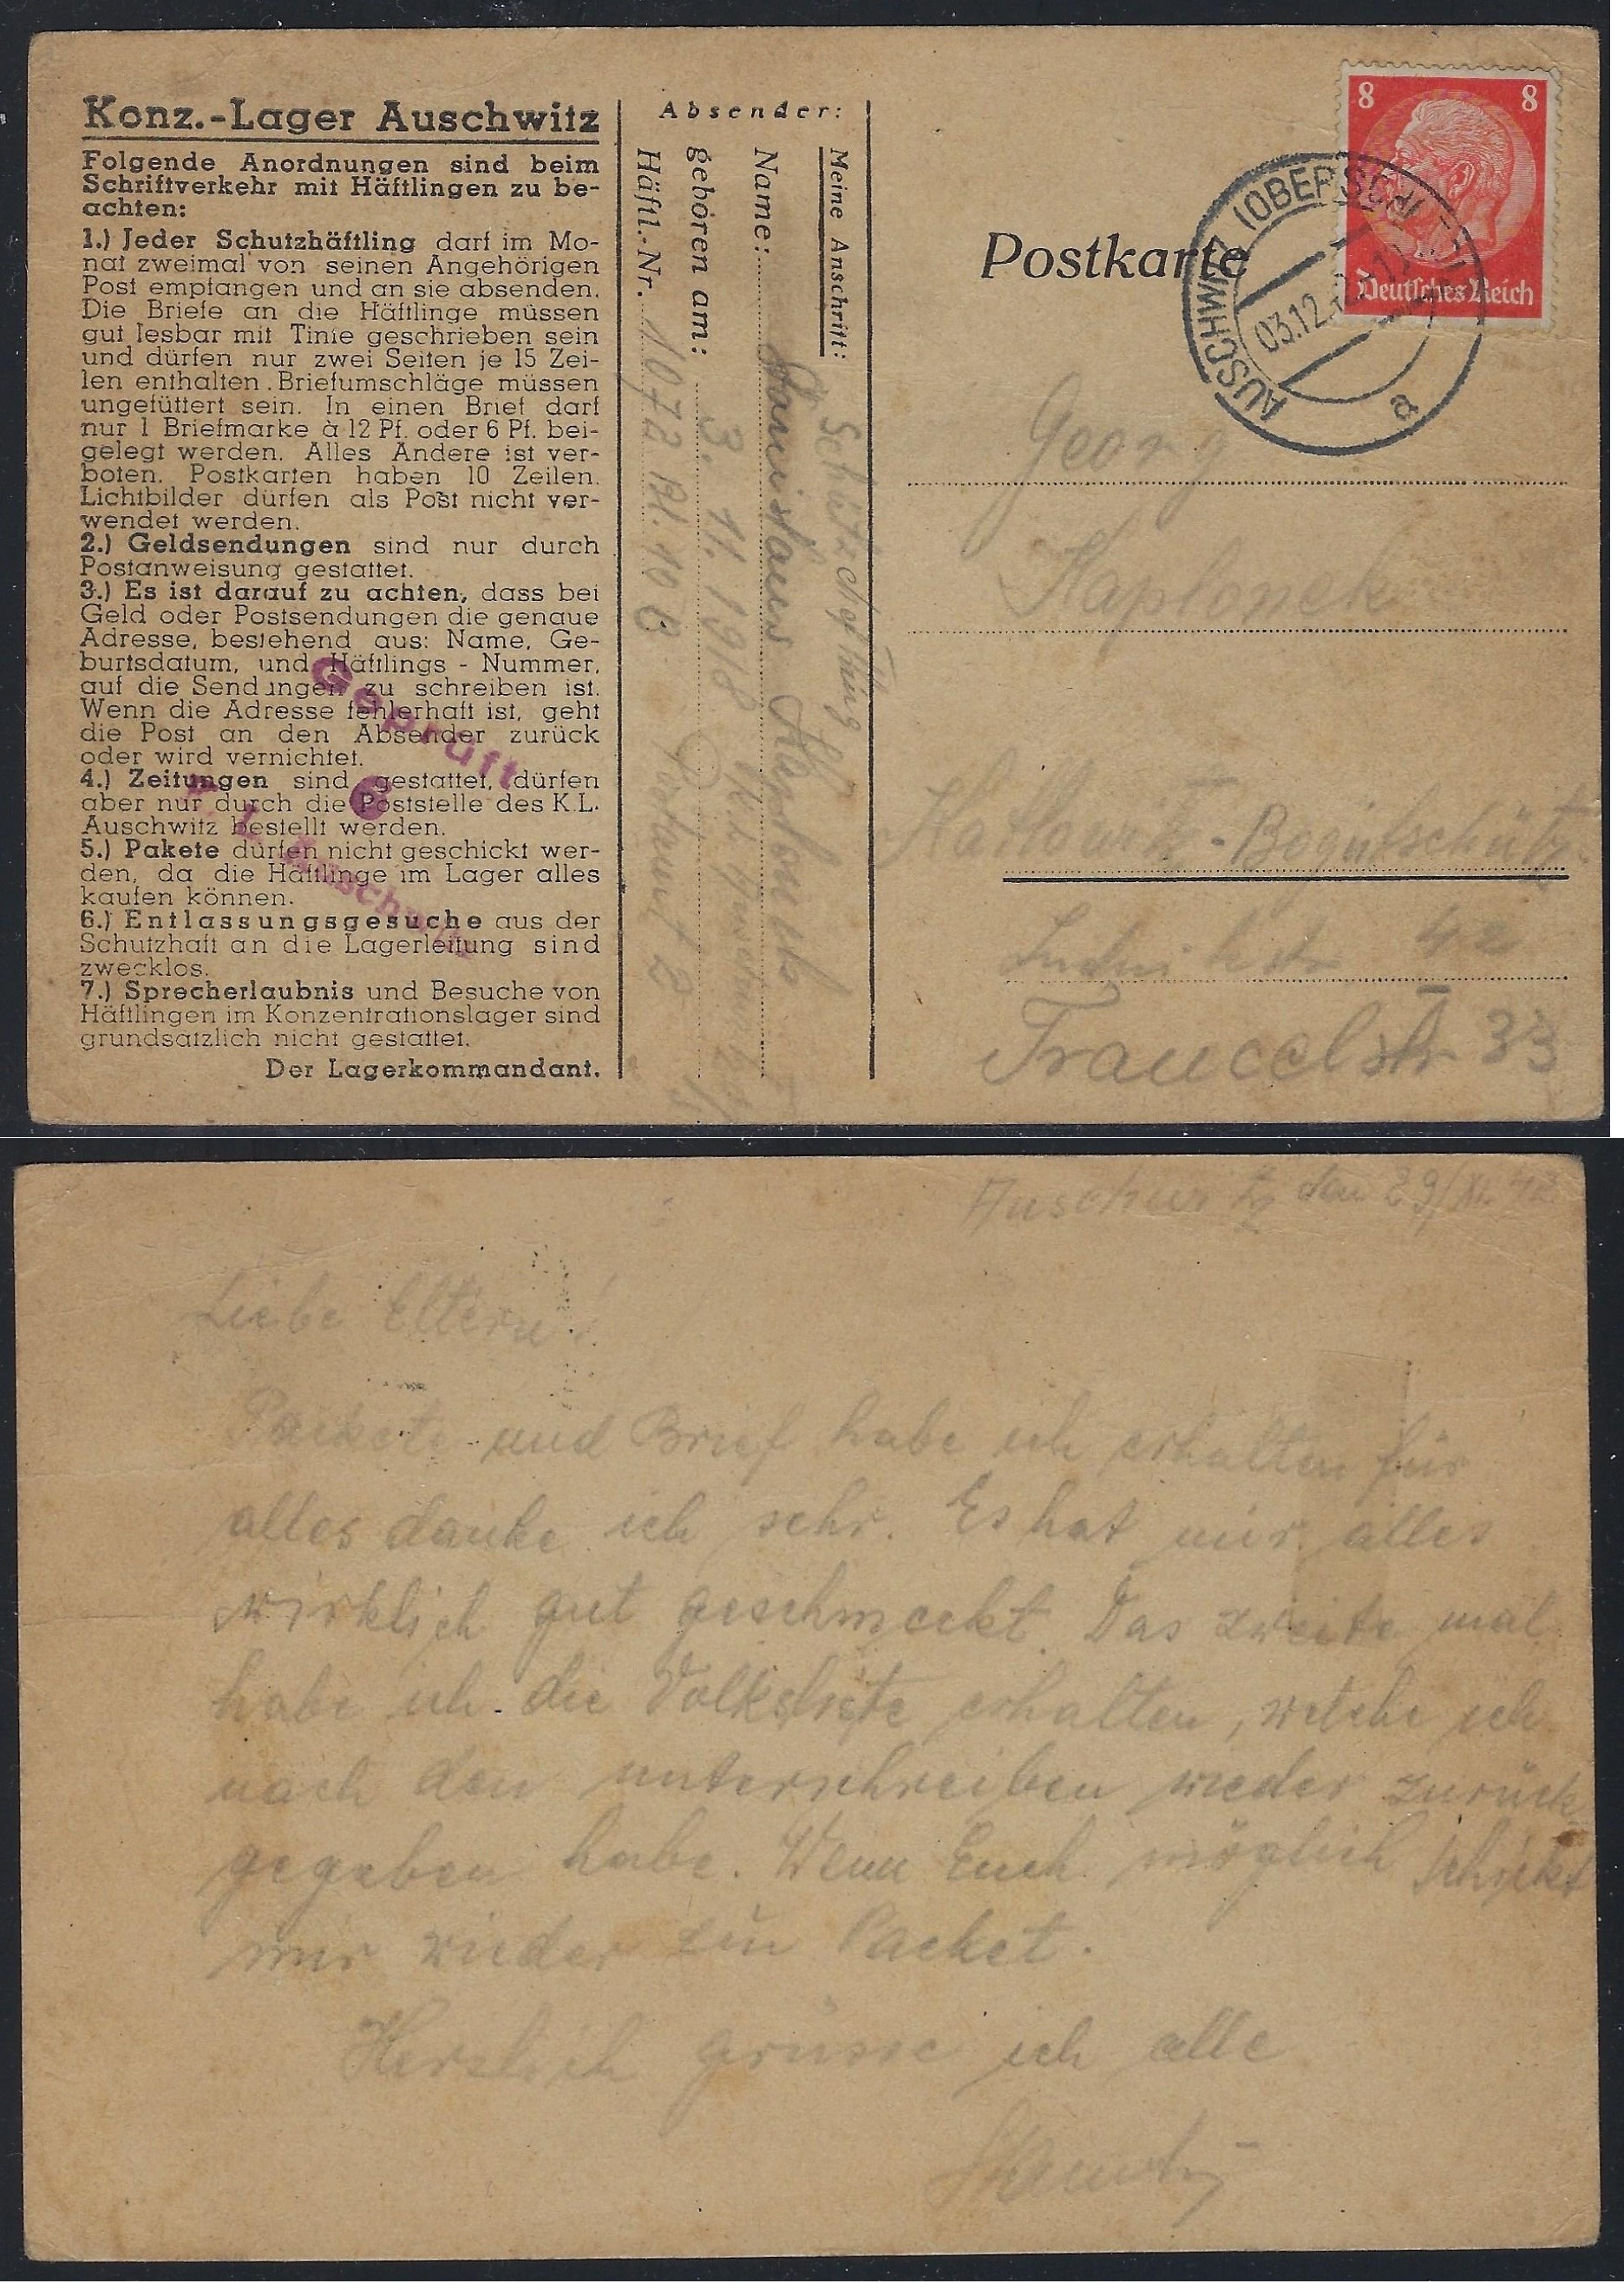 Konz.-Lager Auschwitz
Folgende Anordnungen sind beim
Schriftverkehr mit Häftlingen zu be-
achten:
1.) Jeder Schutzhäftling darf im Mo-
nat zweimal von seinen Angehörigen
Post empfangen und an sie absenden.
Die Briefe an die Häftlinge müssen
gut lesbar mit Tinte geschrieben sein
und dürfen nur zwei Seiten je 15 Zei-
len enthalten. Briefumschläge müssen
ungefüttert sein. In einen Brief darf
nur 1 Briefmarke à 12 Pf. oder 6 Pf. bei-
gelegt werden. Alles Andere ist ver-
boten. Postkarten haben 10 Zeilen.
Lichtbilder dürfen als Post nicht ver-
wendet werden.
2.) Geldsendungen sind nur durch
Postanweisung gestattet.
3.) Es ist darauf zu achten, dass bei
Geld oder Postsendungen die genaue
Adresse, bestehend aus: Name, Ge-
burtsdatum, und Häftlings - Nummer,
auf die Sendungen zu schreiben ist.
Wenn die Adresse fehlerhaft ist, geht
die Post an den Absender zurück
oder wird vernichtet.
4.) Zeitungen sind gestattet, dürfen
aber nur durch die Poststelle des K.L.
Auschwitz bestellt werden.
5.) Pakete dürfen nicht geschickt wer-
den, da die Häftlinge im Lager alles
kaufen können.
6.) Entlassungsgesuche aus der
Schutzhaft an die Lagerleitung sind
zwecklos.
7.) Sprecherlaubnis und Besuche von
Häftlingen im Konzentrationslager sind
grundsätzlich nicht gestattet.
Der Lagerkommandant.
Geprüft
6
K. L. Auschwitz
Absender:
Meine Anschrift:
Schutzhäftling
Name:
geboren am: 3. 11. 1918
Häftl.-Nr. 1072 Bl. 10
Postkarte
8 8
Deutsches Reich
AUSCHWITZ (OBERSCHLES)
03.12.
a
Georg
Kattowitz - Bogutschütz
42
33
Auschwitz den 29/XI. 42
Liebe Eltern!
Packete und Brief habe ich erhalten für
alles danke ich sehr. Es hat mir alles
wirklich gut geschmeckt. Das zweite mal
habe ich die Volksliste erhalten, welche ich
nach den unterschreiben wieder zurück
gegeben habe. Wenn Euch möglich schickt
mir wieder ein Packet.
Herzlich grüsse ich alle